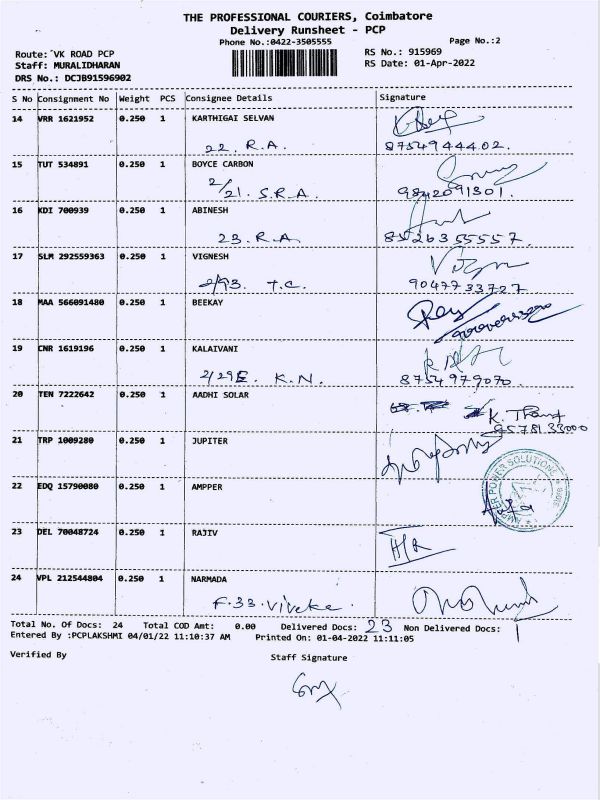 THE PROFESSIONAL COURIERS, Coimbatore
Delivery Runsheet - PCP
Phone No.:0422-3505555
Page No.:2
Route: VK ROAD PCP
RS No.: 915969
Staff: MURALIDHARAN
RS Date: 01-Apr-2022
DRS No.: DCJB91596902
S No Consignment No Weight PCS Consignee Details Signature
14 VRR 1621952 0.250 1 KARTHIGAI SELVAN
22. R.A. 8754944402.
15 TUT 534891 0.250 1 BOYCE CARBON
2/21. S.R.A. 9842091301.
16 KDI 700939 0.250 1 ABINESH
23. R.A 8526355557.
17 SLM 292559363 0.250 1 VIGNESH
2/93. T.C. 9047733727
18 MAA 566091480 0.250 1 BEEKAY
19 CNR 1619196 0.250 1 KALAIVANI
2/29E. K.N. 8754979070.
20 TEN 7222642 0.250 1 AADHI SOLAR
K.
9578133000
21 TRP 1009280 0.250 1 JUPITER
22 EDQ 15790080 0.250 1 AMPPER
AMPPER POWER SOLUTIONS
23 DEL 70048724 0.250 1 RAJIV
24 VPL 212544804 0.250 1 NARMADA
F.33. Viveke.
Total No. Of Docs: 24 Total COD Amt: 0.00 Delivered Docs: 23 Non Delivered Docs: 1
Entered By :PCPLAKSHMI 04/01/22 11:10:37 AM Printed On: 01-04-2022 11:11:05
Verified By
Staff Signature